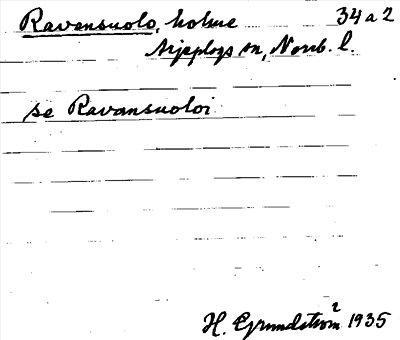 Ravansuolo, holme 34 a 2
Arjeplogs sn, Norrb. l.
se Ravansuoloi
H. Grundström 1935